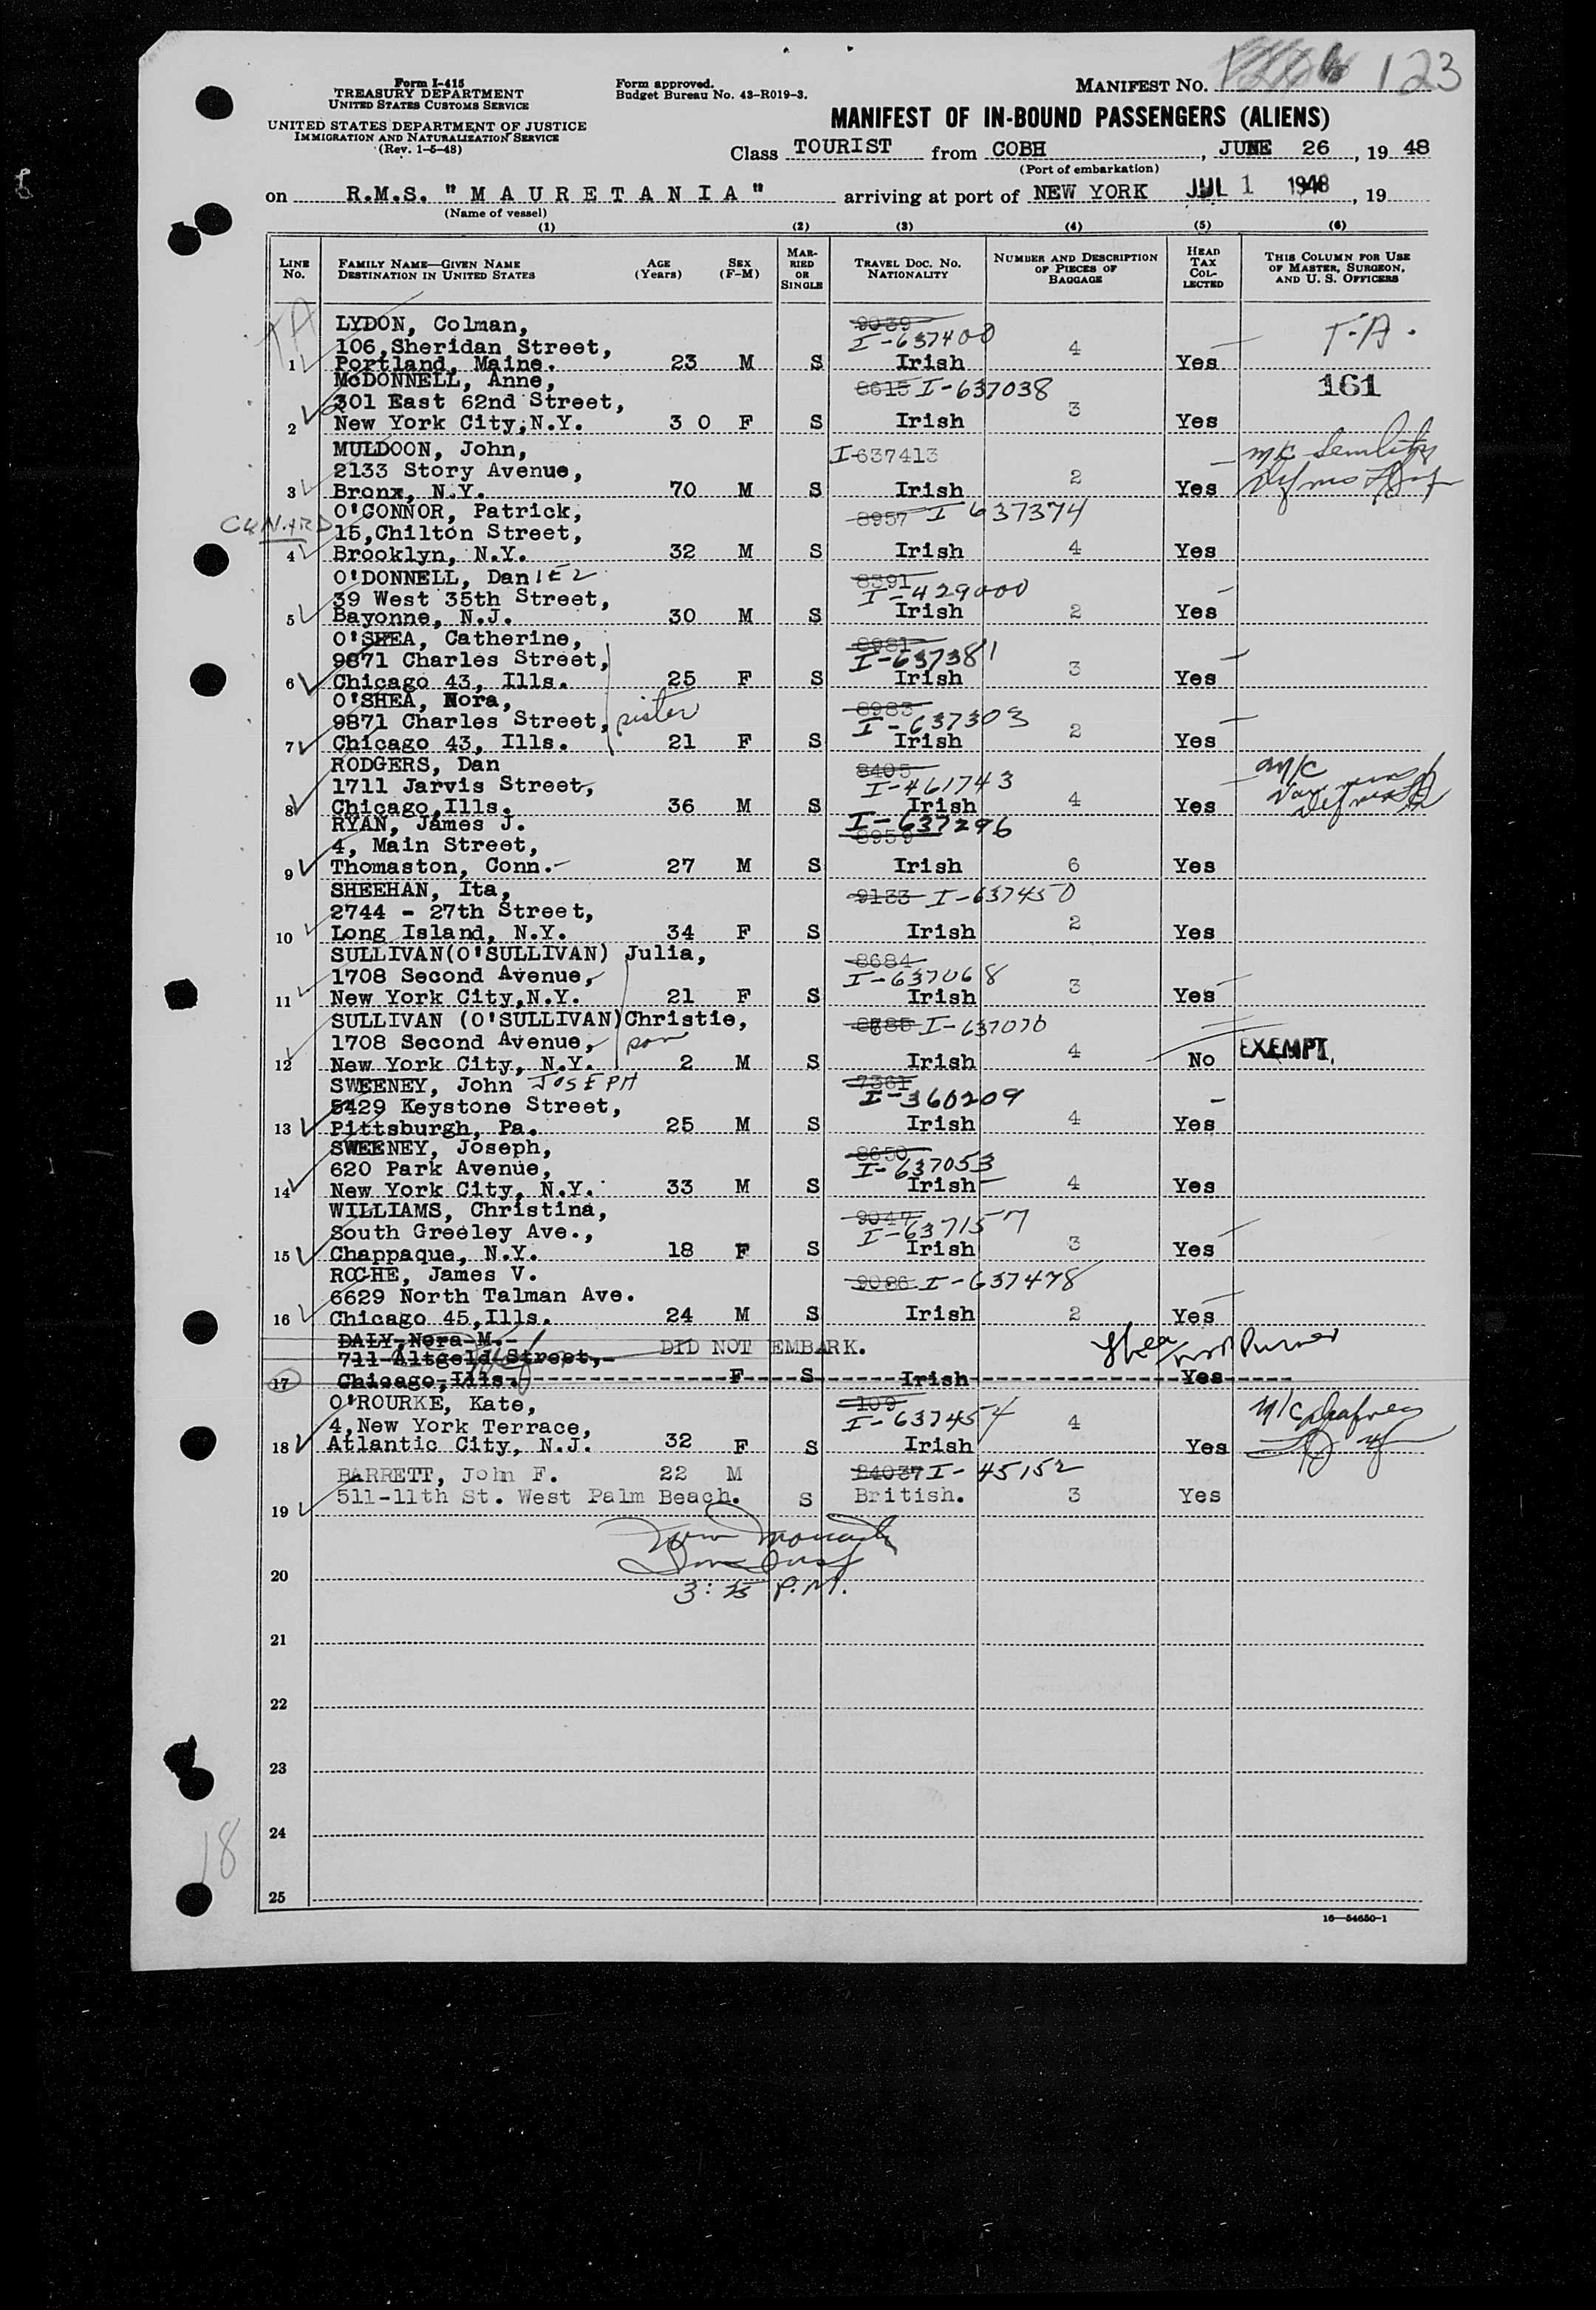 Form I-415
TREASURY DEPARTMENT
UNITED STATES CUSTOMS SERVICE
UNITED STATES DEPARTMENT OF JUSTICE
IMMIGRATION AND NATURALIZATION SERVICE
(Rev. 1-5-48)
Form approved.
Budget Bureau No. 43-R019-3.
MANIFEST NO. 123
MANIFEST OF IN-BOUND PASSENGERS (ALIENS)
Class TOURIST from COBH, JUNE 26, 19 48
(Port of embarkation)
on R.M.S. "MAURETANIA" arriving at port of NEW YORK JUL 1 1948, 19
(Name of vessel)
(1) (2) (3) (4) (5) (6)
LINE NO. FAMILY NAME—GIVEN NAME DESTINATION IN UNITED STATES AGE (Years) SEX (F-M) MARRIED OR SINGLE TRAVEL DOC. NO. NATIONALITY NUMBER AND DESCRIPTION OF PIECES OF BAGGAGE HEAD TAX COLLECTED THIS COLUMN FOR USE OF MASTER, SURGEON, AND U. S. OFFICERS
TA LYDON, Colman, 9039 T.A.
106, Sheridan Street, I-637400 4
1 Portland, Maine. 23 M S Irish Yes
McDONNELL, Anne, 8615 I-637038 161
301 East 62nd Street, 3
2 New York City, N.Y. 30 F S Irish Yes
MULDOON, John, I-637413 m/c
2133 Story Avenue, 2
3 Bronx, N.Y. 70 M S Irish Yes
CUNARD O'CONNOR, Patrick, 8957 I 637374
15, Chilton Street,
4 Brooklyn, N.Y. 32 M S Irish 4 Yes
O'DONNELL, DanIEL 8391
39 West 35th Street, I-429000
5 Bayonne, N.J. 30 M S Irish 2 Yes
O'SHEA, Catherine, 8981
9871 Charles Street, I-637381 3
6 Chicago 43, Ills. 25 F S Irish Yes
O'SHEA, Nora, 8983
9871 Charles Street, sister I-637303 2
7 Chicago 43, Ills. 21 F S Irish Yes
RODGERS, Dan 8405 m/c
1711 Jarvis Street, I-461743
8 Chicago, Ills. 36 M S Irish 4 Yes
RYAN, James J. I-637296
4, Main Street, 8959
9 Thomaston, Conn. 27 M S Irish 6 Yes
SHEEHAN, Ita, 9133 I-637450
2744 - 27th Street, 2
10 Long Island, N.Y. 34 F S Irish Yes
SULLIVAN(O'SULLIVAN) Julia, 8684
1708 Second Avenue, I-637068 3
11 New York City, N.Y. 21 F S Irish Yes
SULLIVAN (O'SULLIVAN)Christie, I-637070
1708 Second Avenue, son 4 EXEMPT.
12 New York City, N.Y. 2 M S Irish No
SWEENEY, John JOSEPH 7361
5429 Keystone Street, I-360209
13 Pittsburgh, Pa. 25 M S Irish 4 Yes
SWEENEY, Joseph, 8650
620 Park Avenue, I-637053
14 New York City, N.Y. 33 M S Irish 4 Yes
WILLIAMS, Christina, 9047
South Greeley Ave., I-637157
15 Chappaque, N.Y. 18 F S Irish 3 Yes
ROCHE, James V. 9086 I-637478
6629 North Talman Ave.
16 Chicago 45, Ills. 24 M S Irish 2 Yes
DALY, Nora M. DID NOT EMBARK.
711 Altgeld Street,
17 Chicago, Ills. F S Irish Yes
O'ROURKE, Kate, 109 m/c
4, New York Terrace, I-637454 4
18 Atlantic City, N.J. 32 F S Irish Yes
BARRETT, John F. 22 M 84037 I-45152
19 511-11th St. West Palm Beach. S British. 3 Yes
20
P.M.
21
22
23
24
18
25
16—54650-1